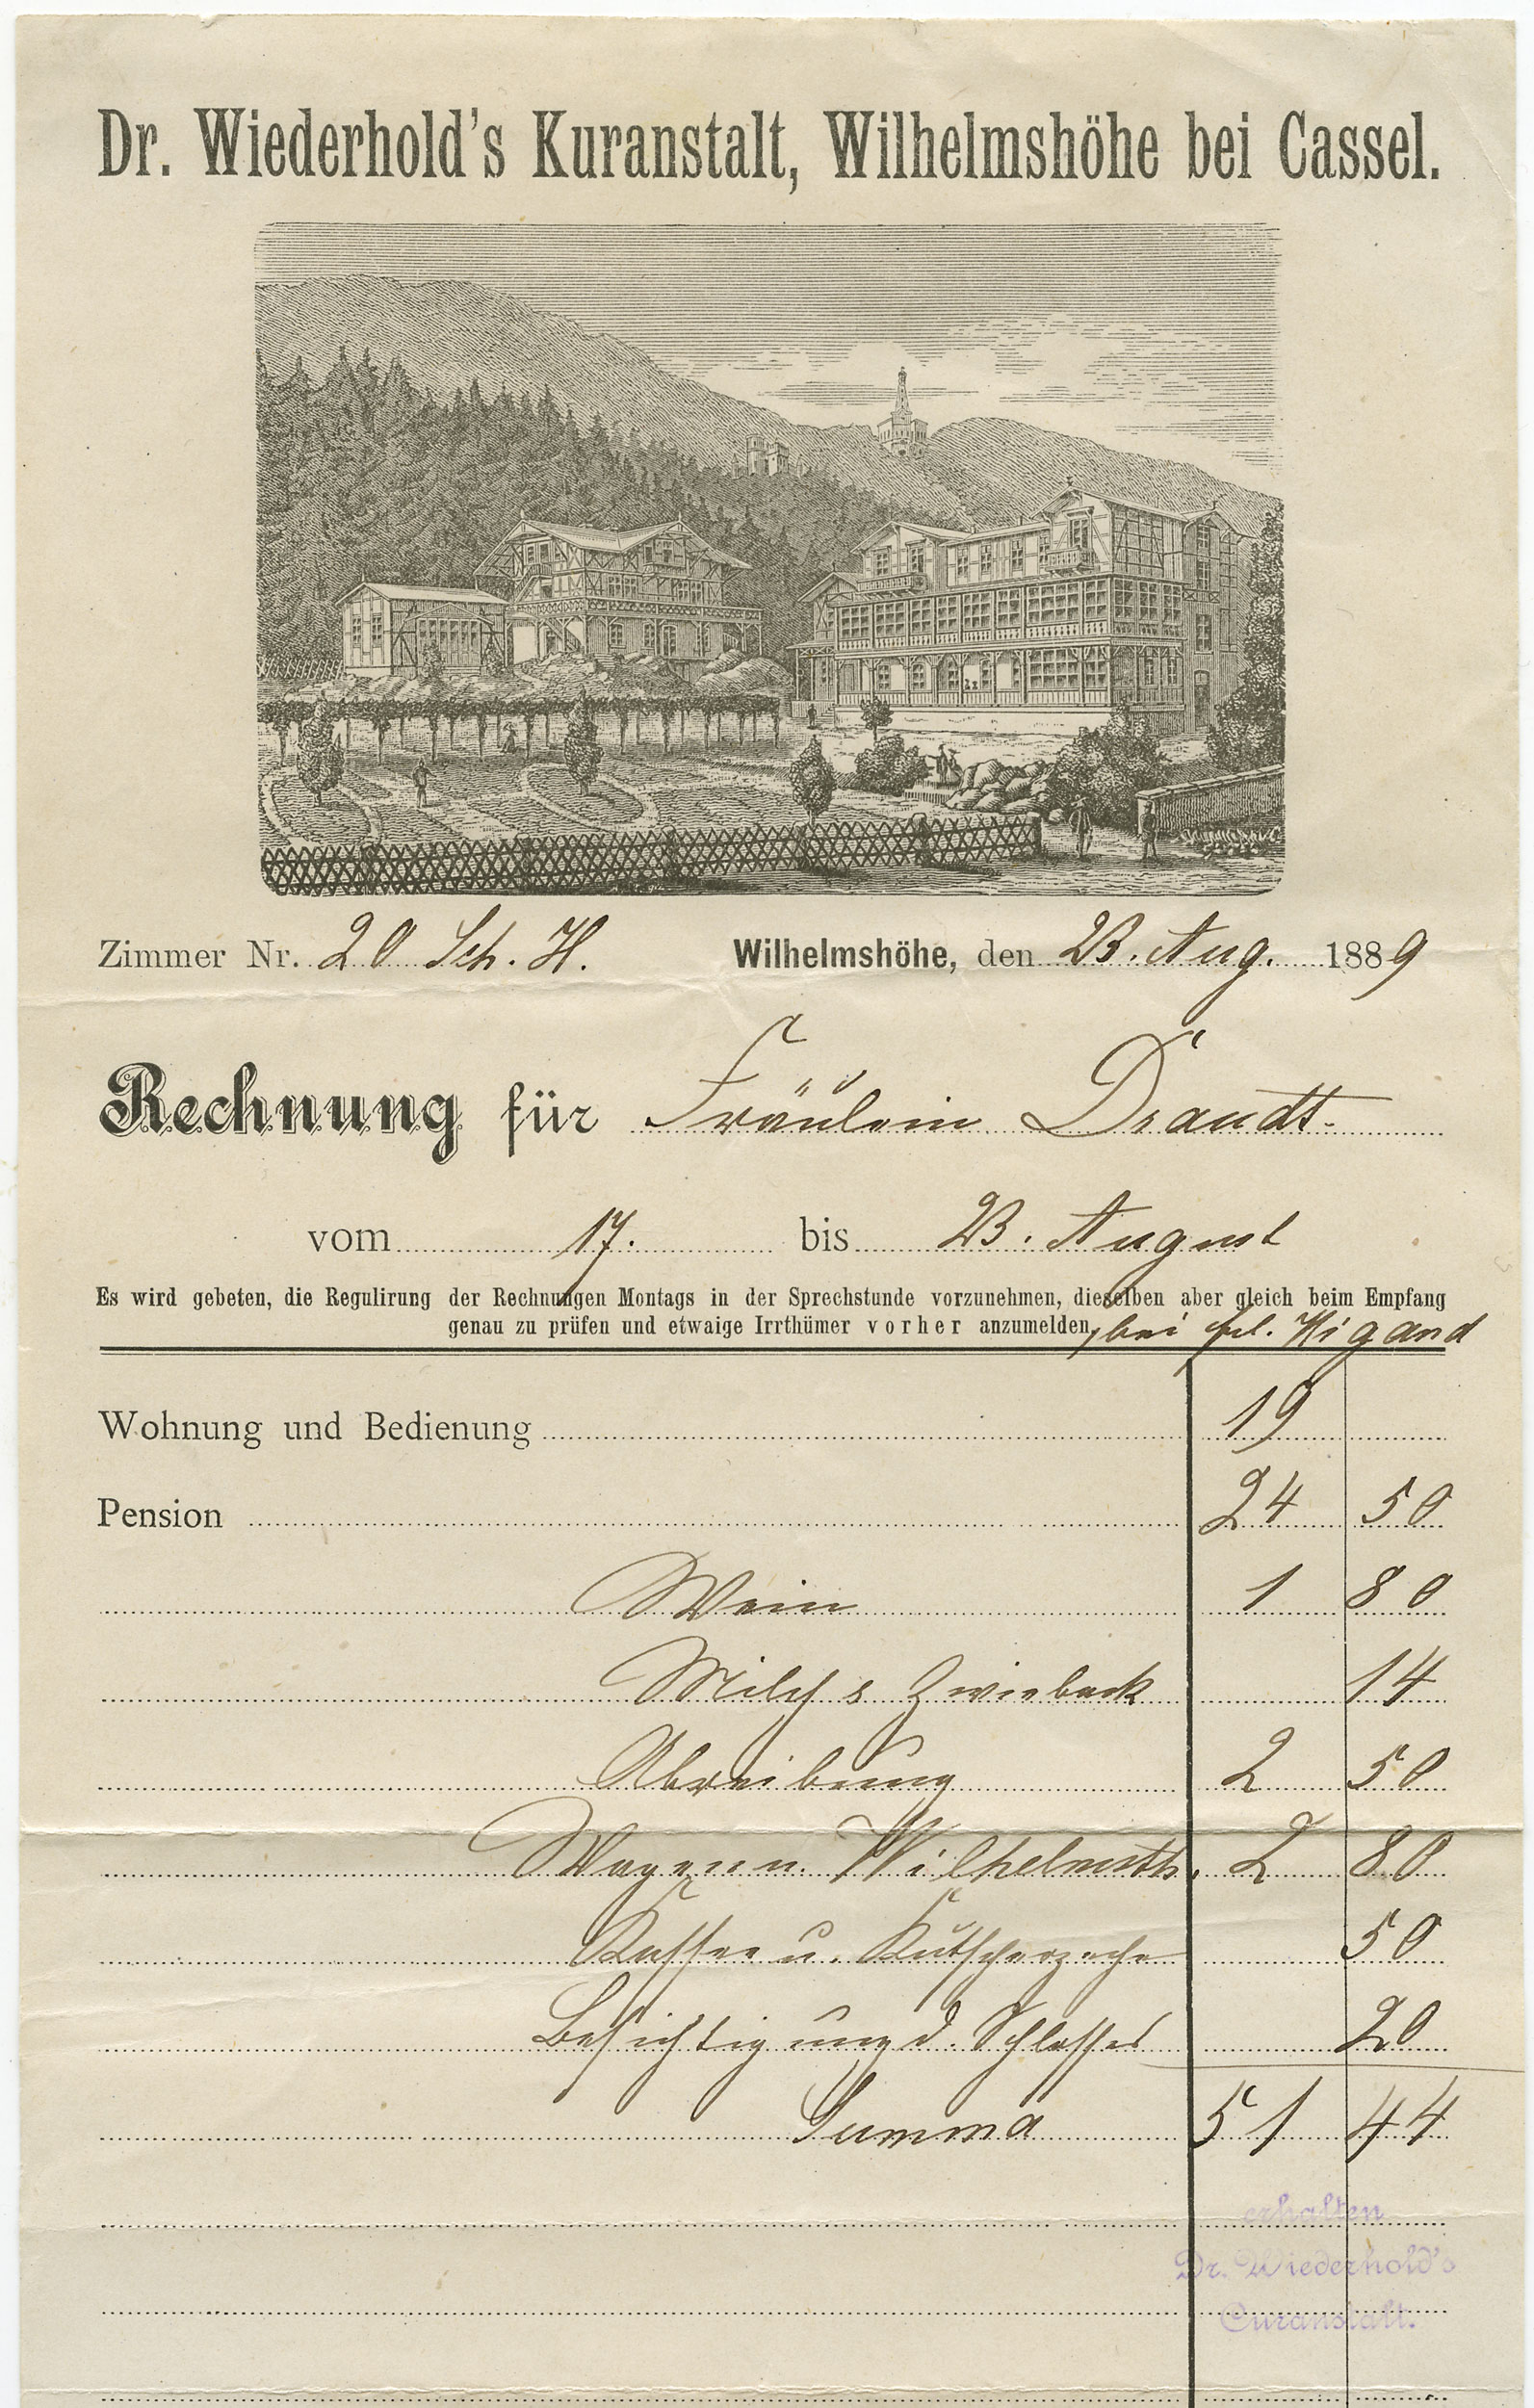 Dr. Wiederhold's Kuranstalt, Wilhelmshöhe bei Cassel.
Zimmer Nr. 20 Sch. H. Wilhelmshöhe, den 23. Aug. 1889
Rechnung für Fräulein Draudt.
vom 17. bis 23. August
Es wird gebeten, die Regulirung der Rechnungen Montags in der Sprechstunde vorzunehmen, dieselben aber gleich beim Empfang
genau zu prüfen und etwaige Irrthümer vorher anzumelden, bei Frl. Wigand
Wohnung und Bedienung 19
Pension 24 50
Wein 1 80
Milch & Zwieback 14
Abreibung 2 50
Wagen n. Wilhelmsth. 2 80
Kaffee u. Kutscherzeche 50
Besichtigung d. Schlosses 20
Summa 51 44
erhalten
Dr. Wiederhold's
Curanstalt.